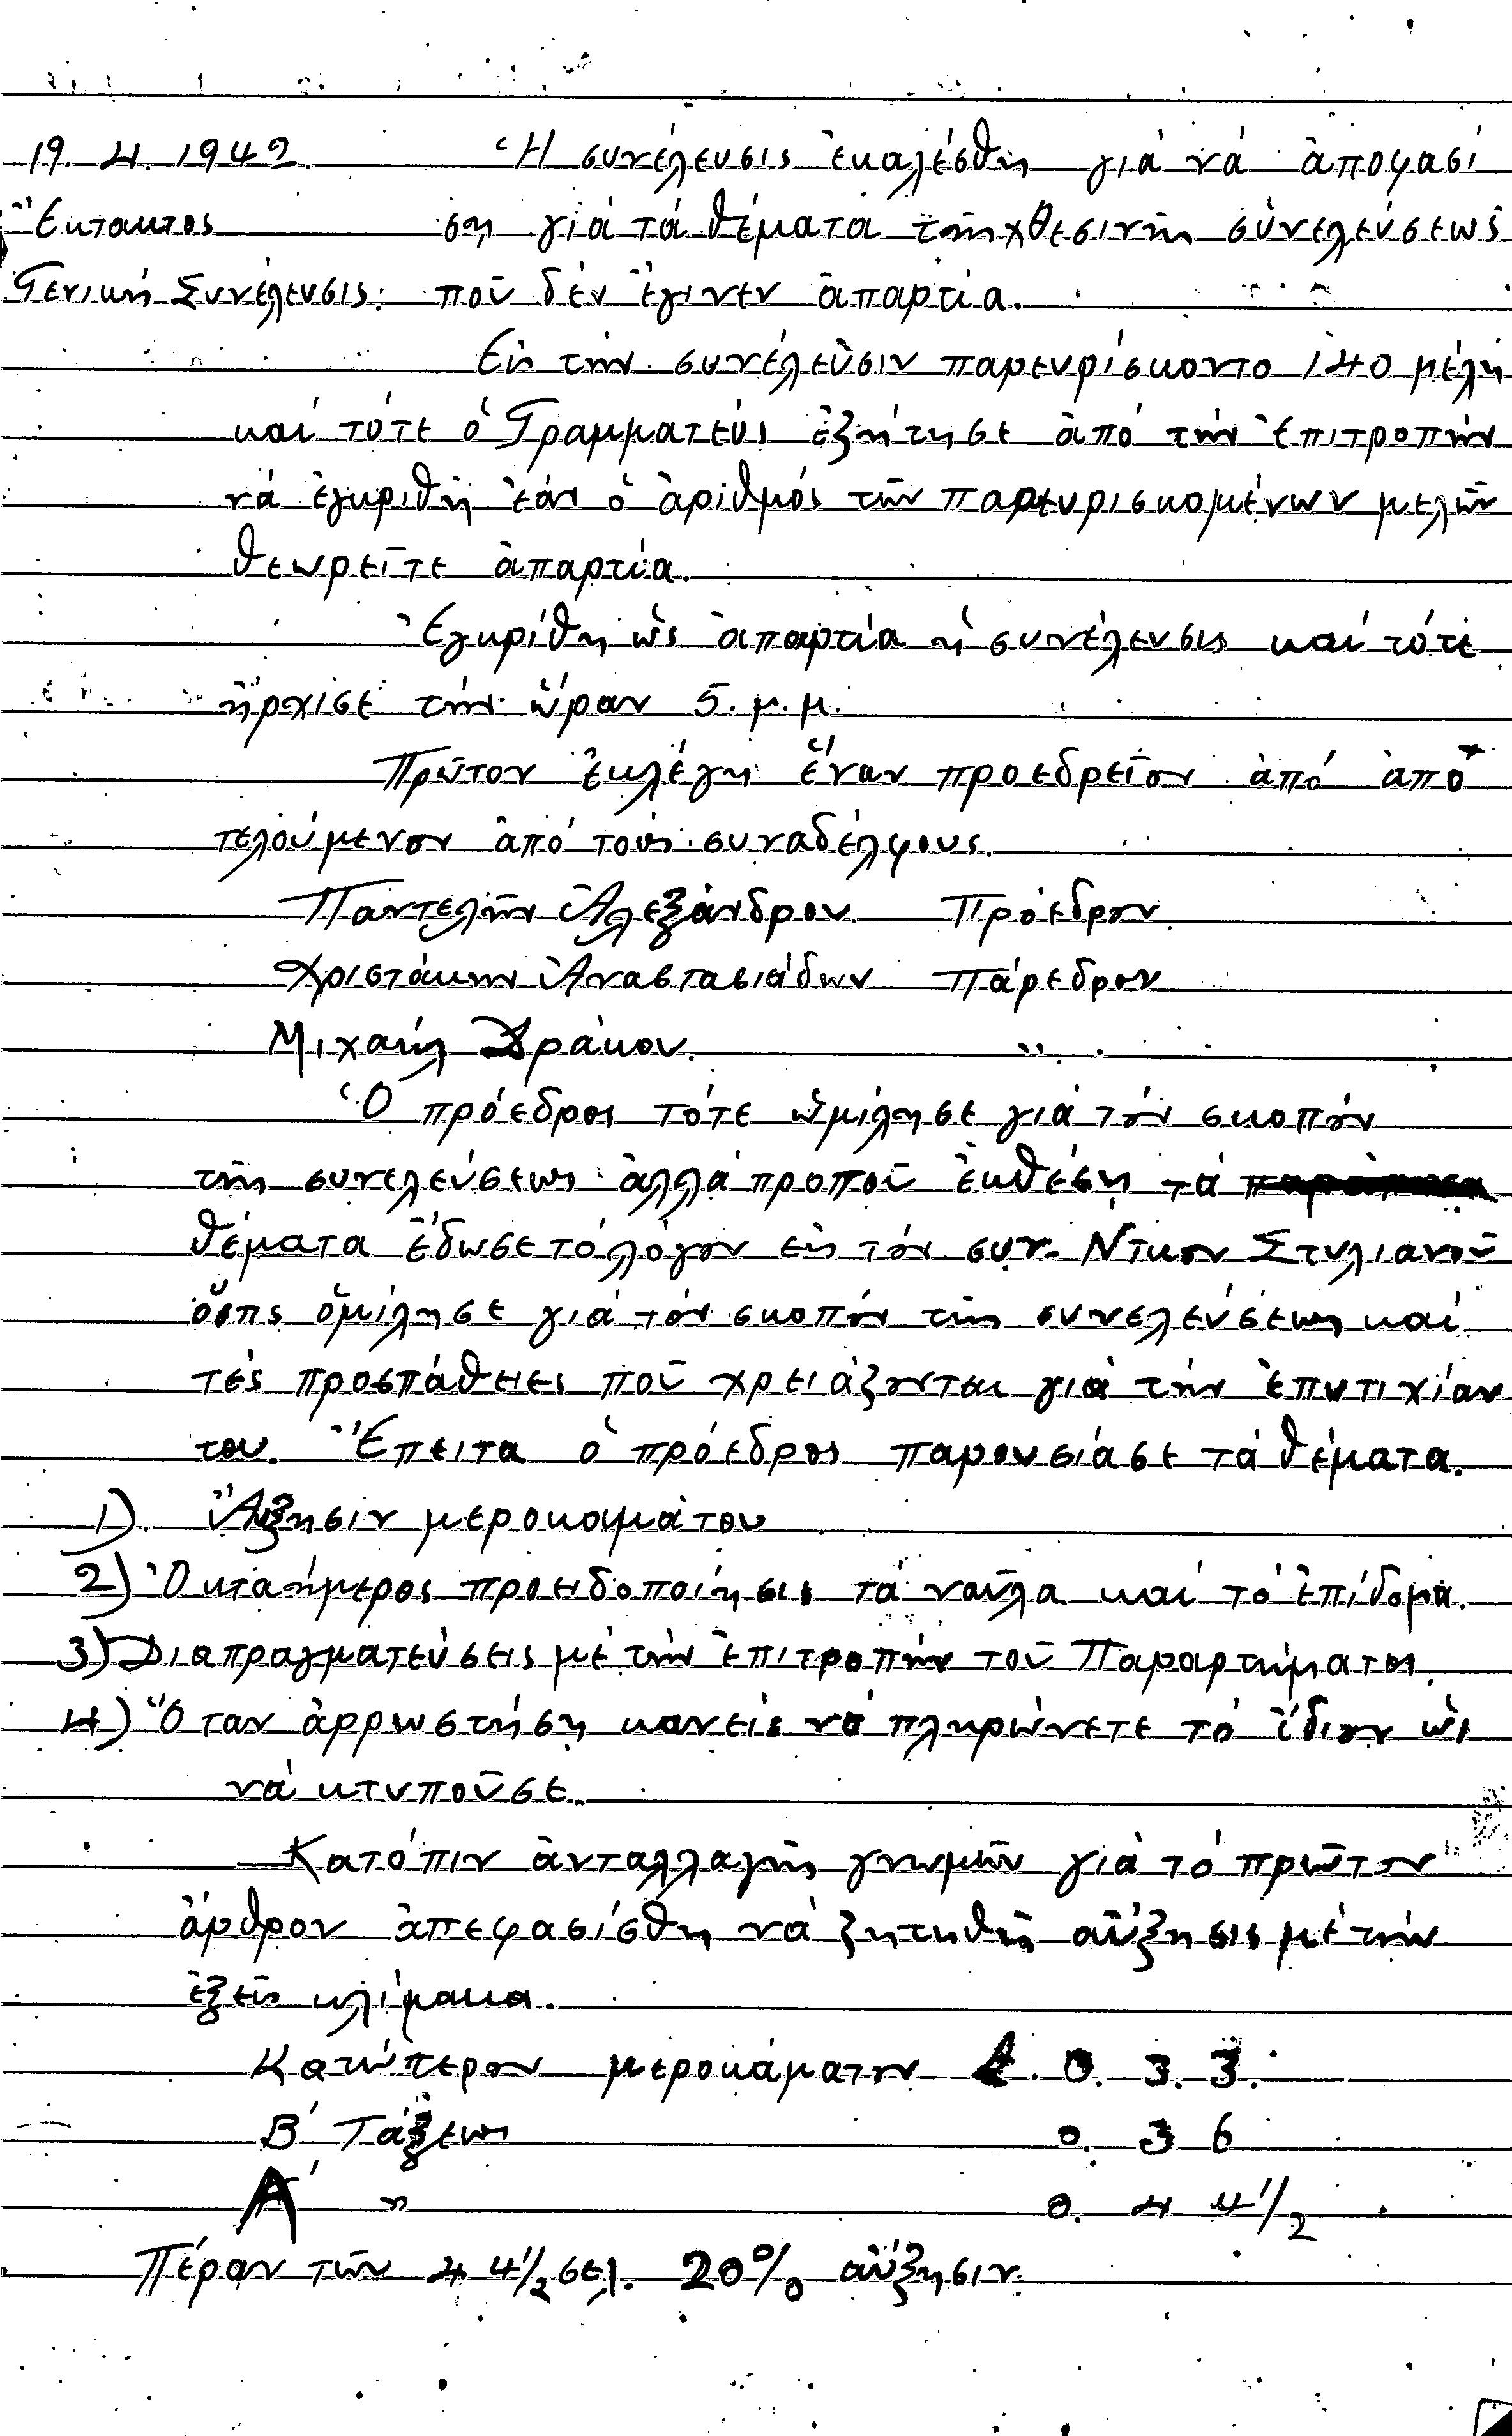 19. 4. 1942. Ἡ συνέλευσις ἐκαλέσθη γιά νά ἀποφασί
Ἔκτακτος ση γιά τά θέματα τῆς χθεσινῆς συνελεύσεως
Γενική Συνέλευσις. ποῦ δέν ἔγινεν ἀπαρτία.
Εἰς τήν συνέλευσιν παρευρίσκοντο 140 μέλη
καί τότε ὁ Γραμματεύς ἐζήτησε ἀπό τήν ἐπιτροπήν
νά ἐγκριθῆ ἐάν ὁ ἀριθμός τῶν παρευρισκομένων μελῶν
θεωρεῖτε ἀπαρτία.
Ἐγκρίθη ὡς ἀπαρτία ἡ συνέλευσις καί τότε
ἤρχισε τήν ὥραν 5. μ. μ.
Πρῶτον ἐκλέγη ἕναν προεδρεῖον ἀπό ἀπο
τελούμενον ἀπό τούς συναδέλφους.
Παντελῆν Ἀλεξάνδρου Πρόεδρον.
Χριστάκην Ἀναστασιάδην Πάρεδρον
Μιχαήλ Δράκου. "
Ὁ πρόεδρος τότε ὡμίλησε γιά τόν σκοπόν
τῆς συνελεύσεως ἀλλά προποῦ ἐκθέση τά
θέματα ἔδωσε τό λόγον εἰς τόν συν. Ντῖκον Στυλιανοῦ
ὅστις ὁμίλησε γιά τόν σκοπόν τῆς συνελεύσεως καί
τές προσπάθειες ποῦ χρειάζονται γιά τήν ἐπυτιχίαν
του. Ἔπειτα ὁ πρόεδρος παρουσίασε τά θέματα.
1). Ἄυξησιν μεροκαμάτου
2) Ὀκταήμερος προειδοποίησις τά ναῦλα καί τό ἐπίδομα.
3) Διαπραγματεύσεις μέ τήν ἐπιτροπήν τοῦ Παραρτήματος.
4) Ὅταν ἀρρωστήση κανείς νά πληρώνετε τό ἴδιον ὡς
νά κτυποῦσε.
Κατόπιν ἀνταλλαγῆς γνωμῶν γιά τό πρῶτον
ἄρθρον ἀπεφασίσθη νά ζητηθῆ αὔξησις μέ τήν
ἑξεῖς κλίμακα.
Κατώτερον μεροκάματον £. 0. 3. 3.
Β' Τάξεως 0. 3 6
Α' " 0. 4 4 1/2
Πέραν τῶν 4 4 1/2 σελ. 20% αὔξησιν.